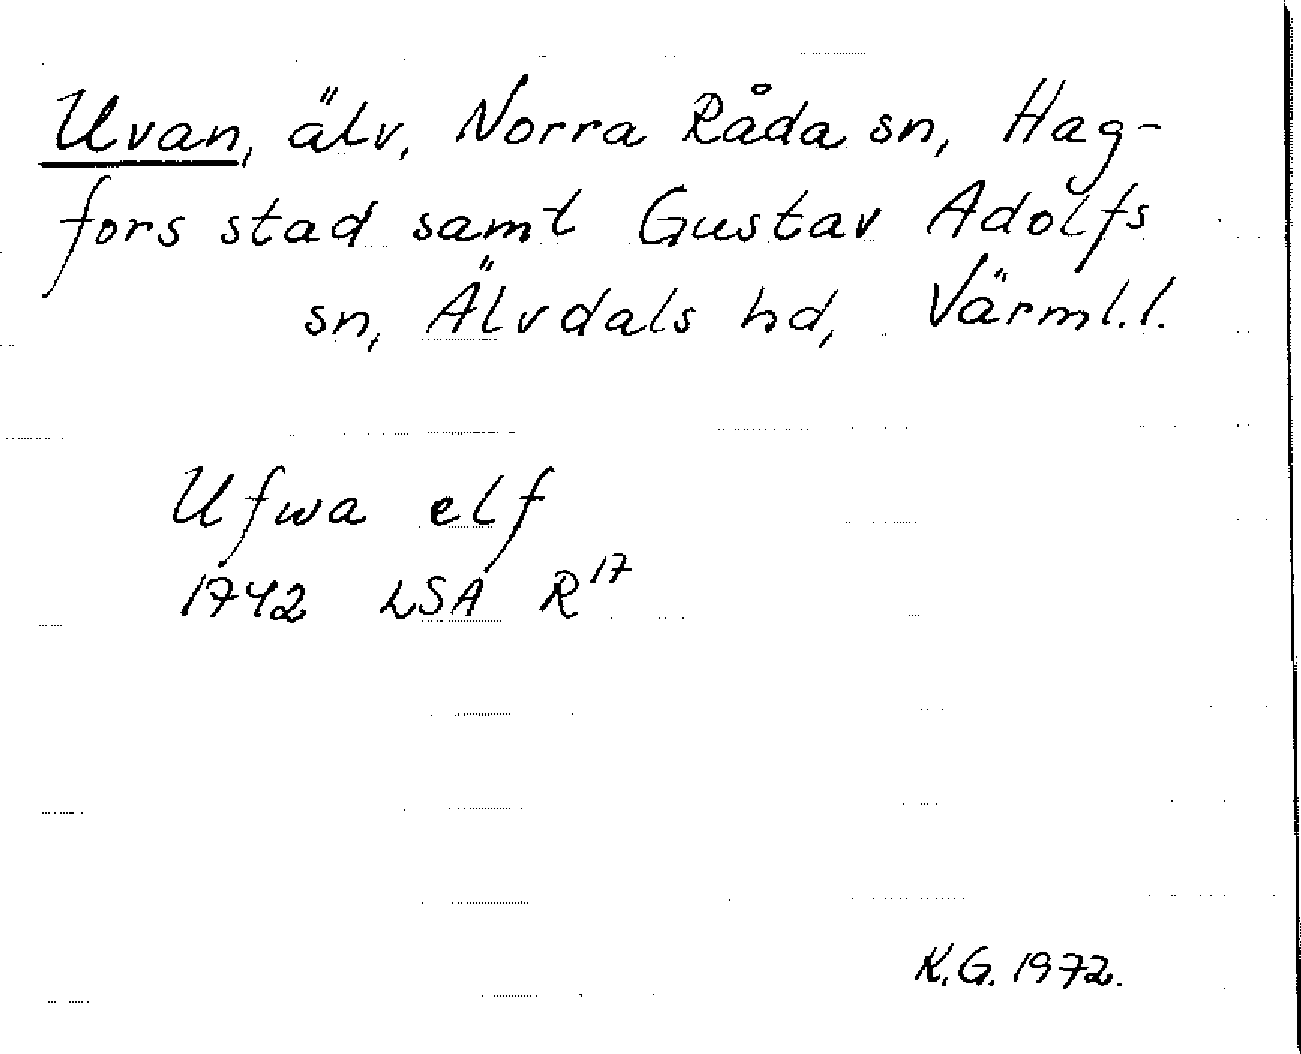 Uvan, älv, Norra Råda sn, Hag-
fors stad samt Gustav Adolfs
sn, Älvdals hd, Värml.l.
Ufwa elf
1742 LSA R17
K.G. 1972.